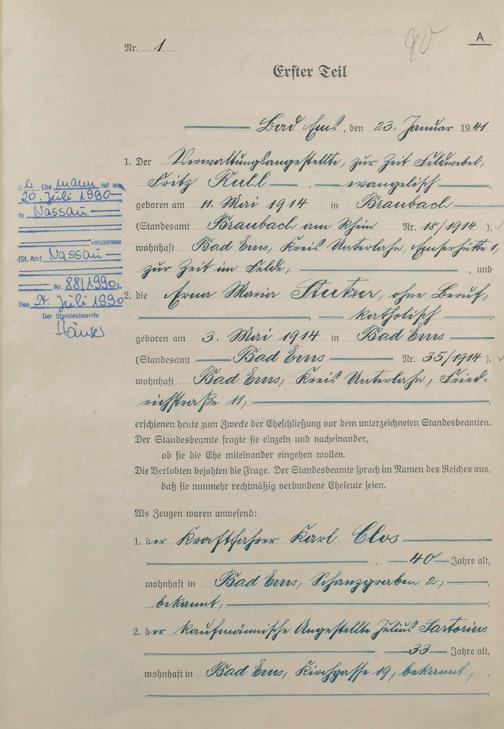 Nr. 1
90
A
Erster Teil
Bad Ems, den 23. Januar 1941
1. Der Verwaltungsangestellte, zur Zeit Feldwebel,
Fritz Kuhl, evangelisch
geboren am 11. Mai 1914 in Braubach
(Standesamt Braubach am Rhein Nr. 18/1914).
wohnhaft Bad Ems, Kreis Unterlahn, Emserhütte 1,
zur Zeit im Felde, und
2. die Erna Maria Stutzer, ohne Beruf,
katholisch
geboren am 3. Mai 1914 in Bad Ems
(Standesamt Bad Ems Nr. 35/1914).
wohnhaft Bad Ems, Kreis Unterlahn, Fried-
richstraße 11,
erschienen heute zum Zwecke der Eheschließung vor dem unterzeichneten Standesbeamten.
Der Standesbeamte fragte sie einzeln und nacheinander,
ob sie die Ehe miteinander eingehen wollen.
Die Verlobten bejahten die Frage. Der Standesbeamte sprach im Namen des Reiches aus,
daß sie nunmehr rechtmäßig verbundene Eheleute seien.
Als Zeugen waren anwesend:
1. der Kraftfahrer Karl Clos
40 Jahre alt,
wohnhaft in Bad Ems, Schanzgraben 2,
bekannt,
2. der kaufmännische Angestellte Julius Sartorius
33 Jahre alt,
wohnhaft in Bad Ems, Kirchgasse 19, bekannt,
Ehemann ist am
20. Juli 1990
in Nassau
verstorben
(St. Amt Nassau
Nr. 88/1990).
Den Juli 1990
Der Standesbeamte